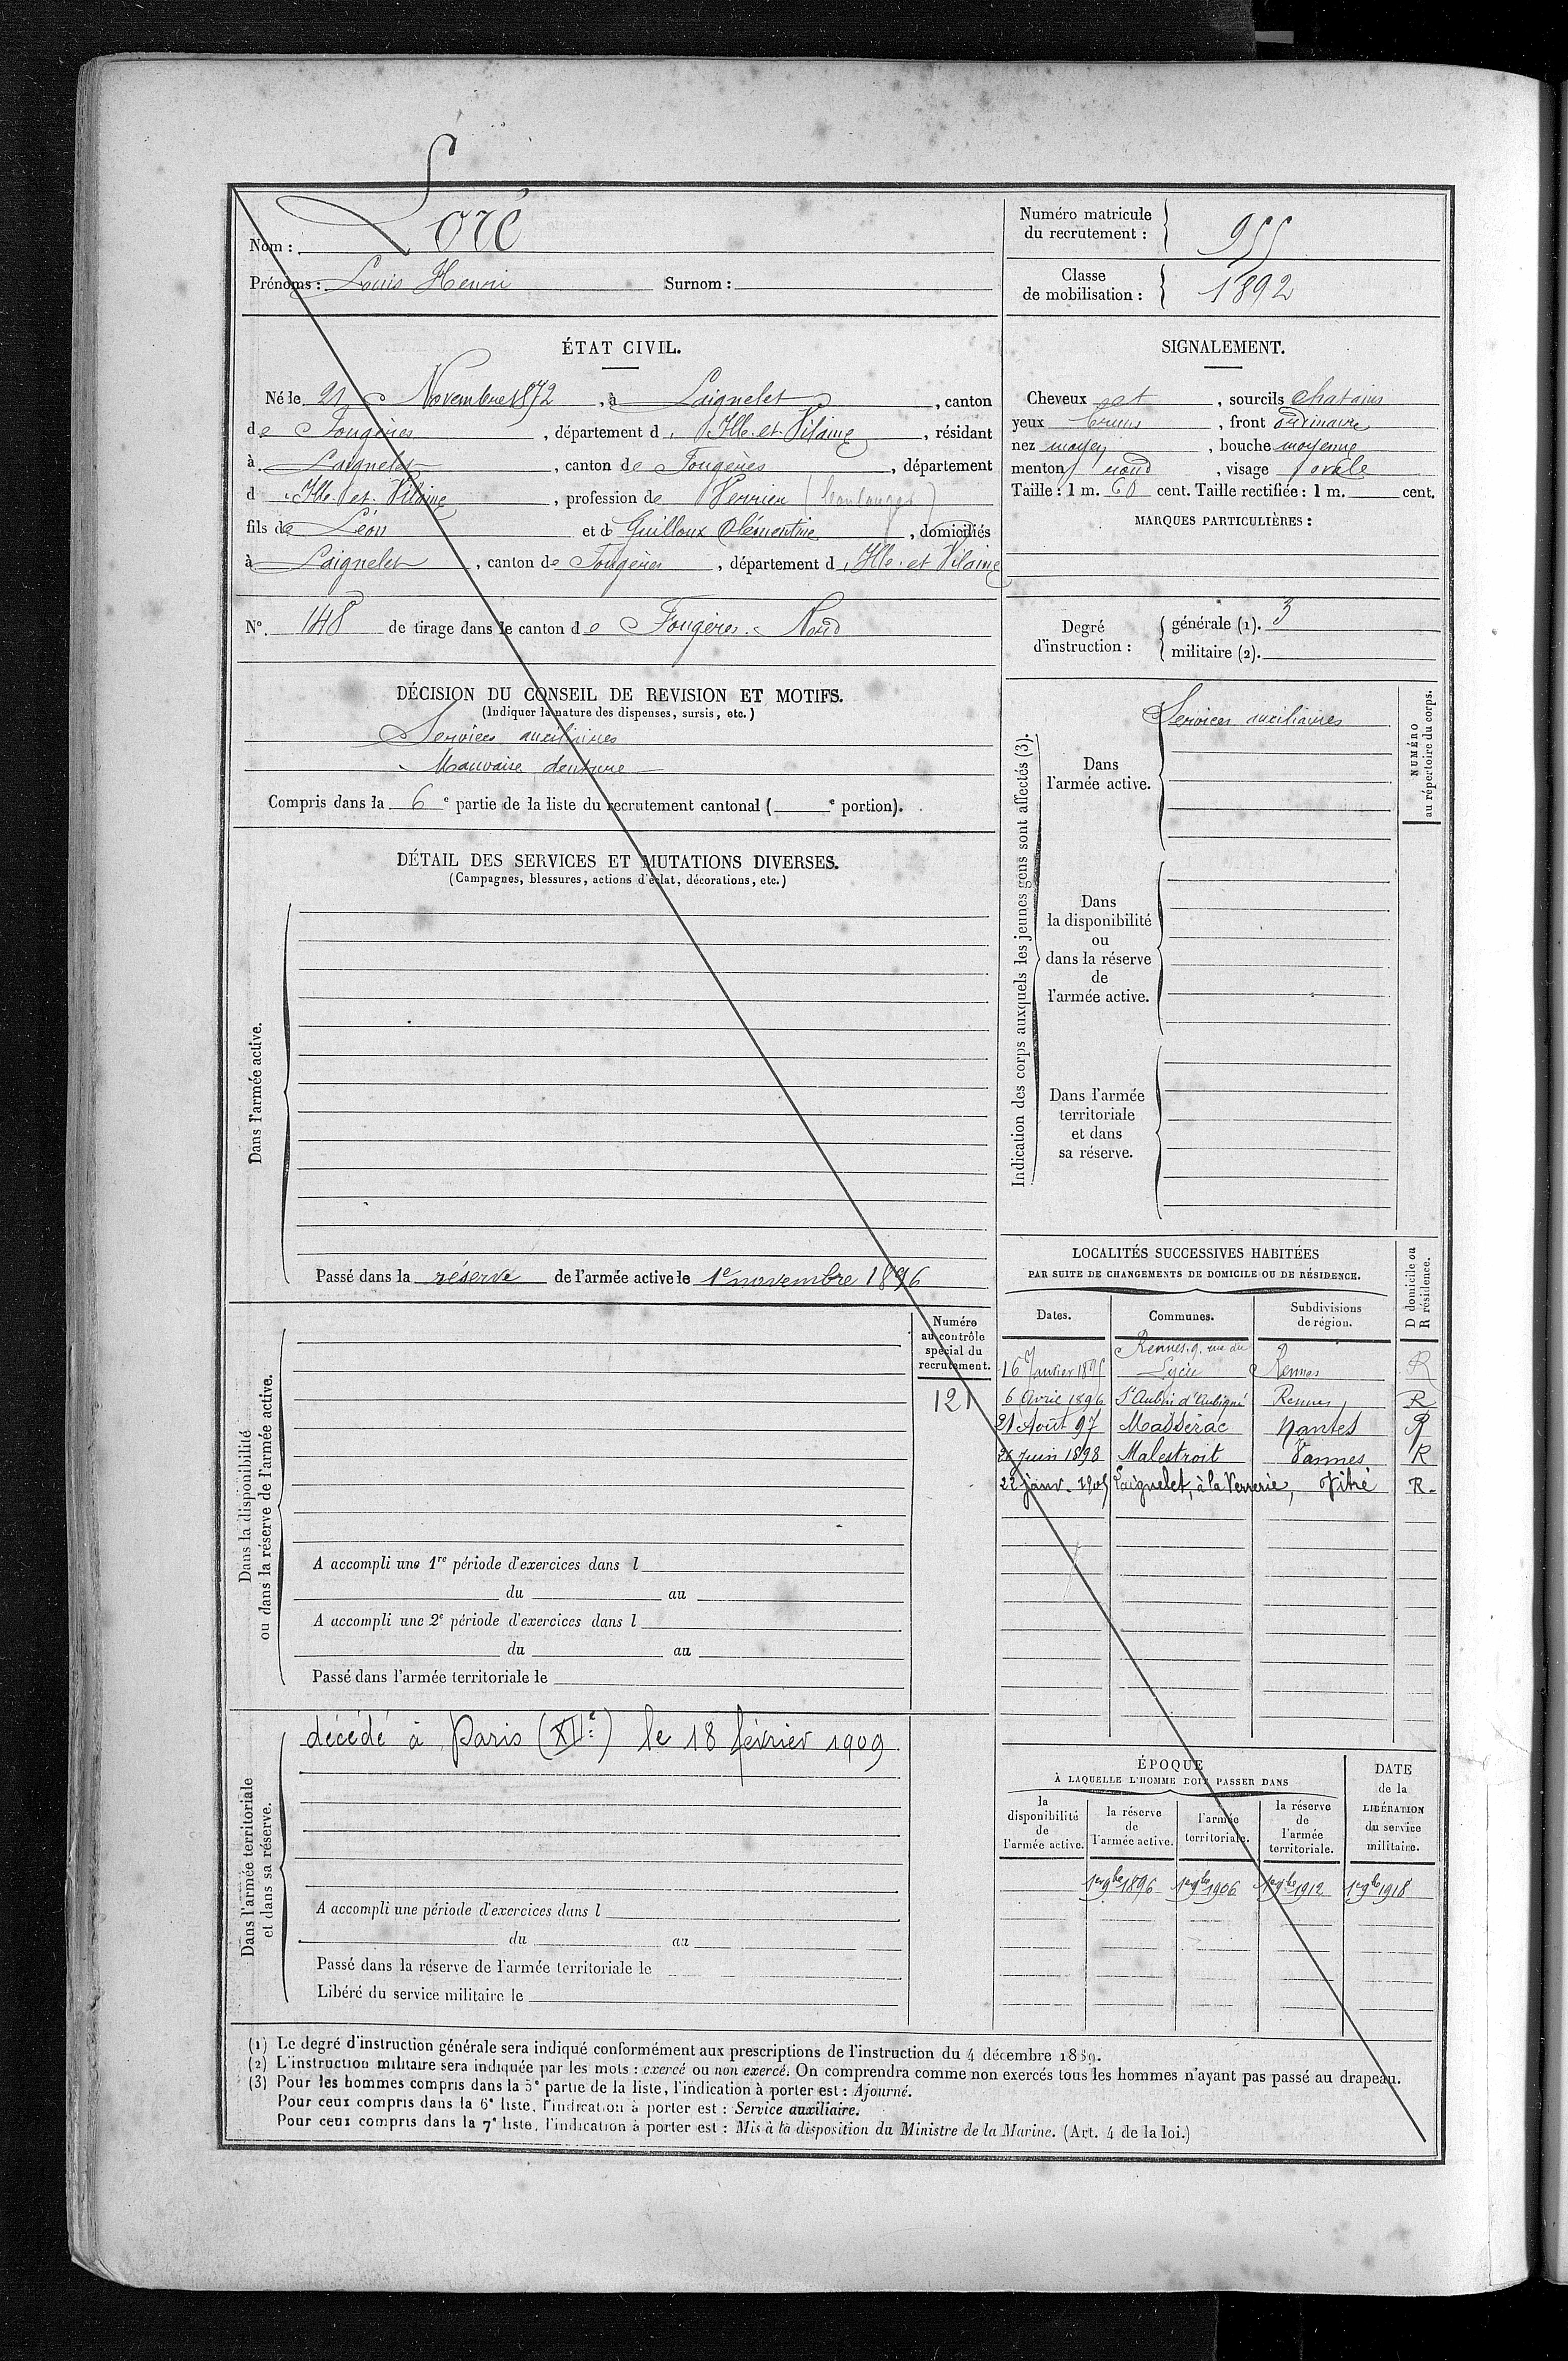 Nom : Loré
Prénoms : Louis Henri Surnom :
Numéro matricule du recrutement : 955
Classe de mobilisation : 1892
ÉTAT CIVIL.
Né le 21 Novembre 1872, à Laignelet, canton
de Fougères, département d'Ille-et-Vilaine, résidant
à Laignelet, canton de Fougères, département
d'Ille-et-Vilaine, profession de Verrier (boulanger)
fils de Léon et de Guilloux Clémentine, domiciliés
à Laignelet, canton de Fougères, département d'Ille-et-Vilaine
N° 148 de tirage dans le canton de Fougères-Nord
SIGNALEMENT.
Cheveux et, sourcils chatains
yeux bruns, front ordinaire
nez moyen, bouche moyenne
menton rond, visage ovale
Taille : 1 m. 60 cent. Taille rectifiée : 1 m. cent.
MARQUES PARTICULIÈRES :
Degré d'instruction : générale (1). 3
militaire (2).
DÉCISION DU CONSEIL DE REVISION ET MOTIFS.
(Indiquer la nature des dispenses, sursis, etc.)
Services auxiliaires
Mauvaise denture
Compris dans la 6e partie de la liste du recrutement cantonal ( e portion).
DÉTAIL DES SERVICES ET MUTATIONS DIVERSES.
(Campagnes, blessures, actions d'éclat, décorations, etc.)
Dans l'armée active.
Passé dans la réserve de l'armée active le 1e novembre 1896
Indication des corps auxquels les jeunes gens sont affectés (3).
NUMÉRO
au répertoire du corps.
Dans
l'armée active.
Services auxiliaires
Dans
la disponibilité
ou
dans la réserve
de
l'armée active.
Dans l'armée
territoriale
et dans
sa réserve.
Dans la disponibilité
ou dans la réserve de l'armée active.
Numéro
au contrôle
spécial du
recrutement.
121
A accompli une 1re période d'exercices dans l
du au
A accompli une 2e période d'exercices dans l
du au
Passé dans l'armée territoriale le
LOCALITÉS SUCCESSIVES HABITÉES
PAR SUITE DE CHANGEMENTS DE DOMICILE OU DE RÉSIDENCE.
D domicile ou
R résidence.
Dates. Communes. Subdivisions de région.
Rennes, 9, rue du
16 Janvier 1895 Lycée Rennes R
6 Avril 1896 St Aubin d'Aubigné Rennes R
21 Août 97 Massérac Nantes R
26 juin 1898 Malestroit Vannes R
22 janv. 1905 Laignelet, à la Verrerie, Vitré R.
Dans l'armée territoriale
et dans sa réserve.
décédé à Paris (XIe) le 18 février 1909
A accompli une période d'exercices dans l
du au
Passé dans la réserve de l'armée territoriale le
Libéré du service militaire le
ÉPOQUE
À LAQUELLE L'HOMME DOIT PASSER DANS
la disponibilité de l'armée active.
la réserve de l'armée active.
l'armée territoriale.
la réserve de l'armée territoriale.
DATE de la LIBÉRATION du service militaire.
1er 9bre 1896 1er 9bre 1906 1er 9bre 1912 1er 9bre 1918
(1) Le degré d'instruction générale sera indiqué conformément aux prescriptions de l'instruction du 4 décembre 1889.
(2) L'instruction militaire sera indiquée par les mots : exercé ou non exercé. On comprendra comme non exercés tous les hommes n'ayant pas passé au drapeau.
(3) Pour les hommes compris dans la 5e partie de la liste, l'indication à porter est : Ajourné.
Pour ceux compris dans la 6e liste, l'indication à porter est : Service auxiliaire.
Pour ceux compris dans la 7e liste, l'indication à porter est : Mis à la disposition du Ministre de la Marine. (Art. 4 de la loi.)